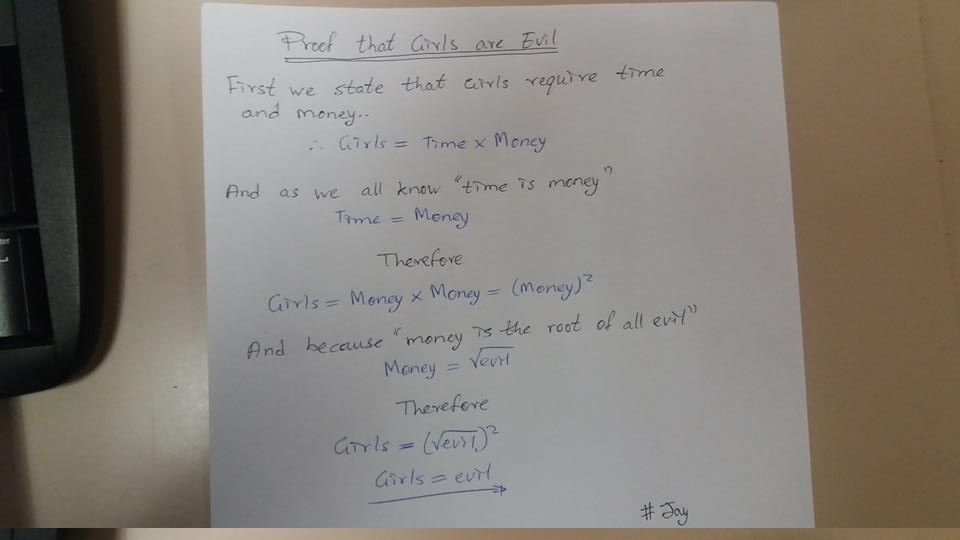 Proof that Girls are Evil
First we state that Girls require time
and money..
∴ Girls = Time x Money
And as we all know "time is money"
Time = Money
Therefore
Girls = Money x Money = (Money)²
And because "money is the root of all evil"
Money = √evil
Therefore
Girls = (√evil)²
Girls = evil
# Jay